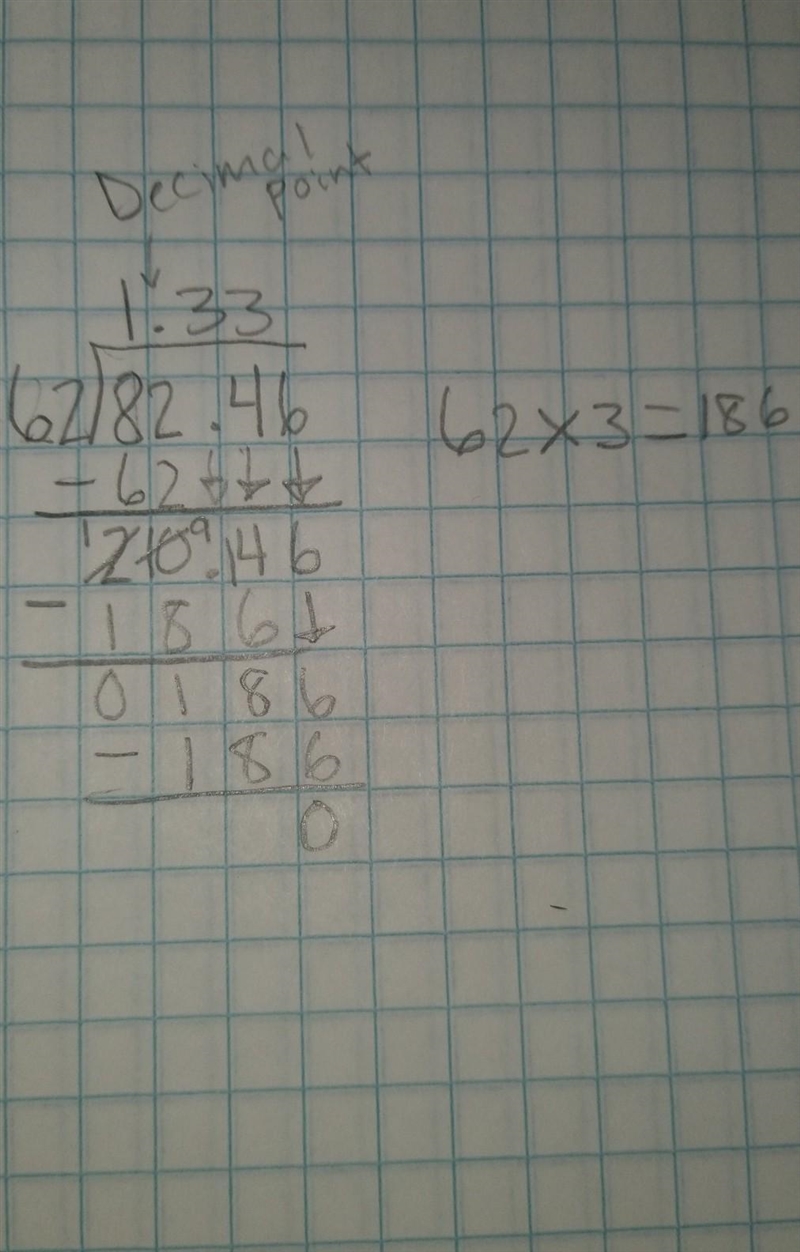 Decimal
point
1.33
62)82.46
62×3=186
-62↓↓↓
1 2 10 9.14 6
- 1 8 6 ↓
0 1 8 6
- 1 8 6
0